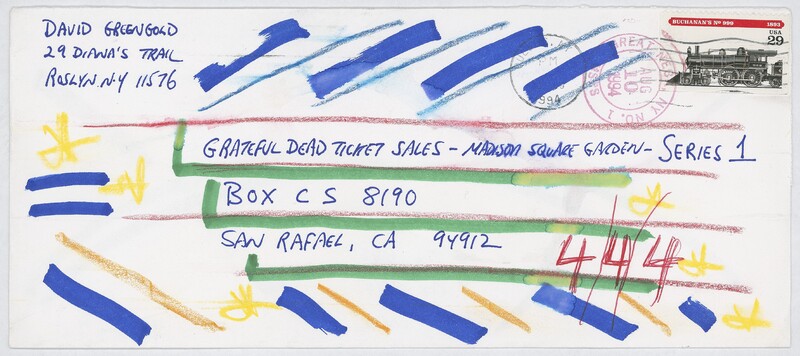 DAVID GREENGOLD
29 DIANA'S TRAIL
ROSLYN. N.Y 11576
BUCHANAN'S No 999 1893
USA
29
GREAT NECK, NY NO. 1
AUG
10
1994
USPS
1994
GRATEFUL DEAD TICKET SALES - MADISON SQUARE GARDEN - SERIES 1
BOX C S 8190
SAN RAFAEL, CA 94912
4/4/4